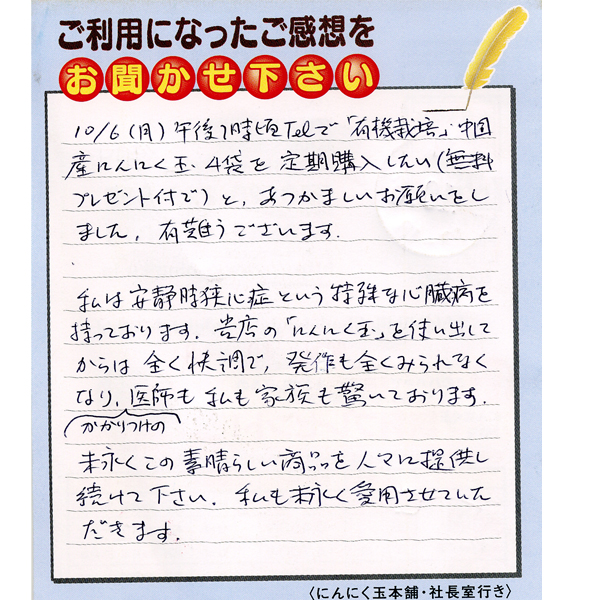 ご利用になったご感想を
お聞かせ下さい
10/6(月)午後1時頃Telで「有機栽培」中国
産にんにく玉、4袋を定期購入したい(無料
プレゼント付で)と、あつかましいお願いをし
ました。有難うございます。
私は安静時狭心症という特殊な心臓病を
持っております。당店の「にんにく玉」を使い出して
からは全く快調で、発作も全くみられなく
なり、医師も私も家族も驚いております。
かかりつけの
末永くこの素晴らしい商品を人々に提供し
続けて下さい。私も末永く愛用させていた
だきます。
〈にんにく玉本舗・社長室行き〉